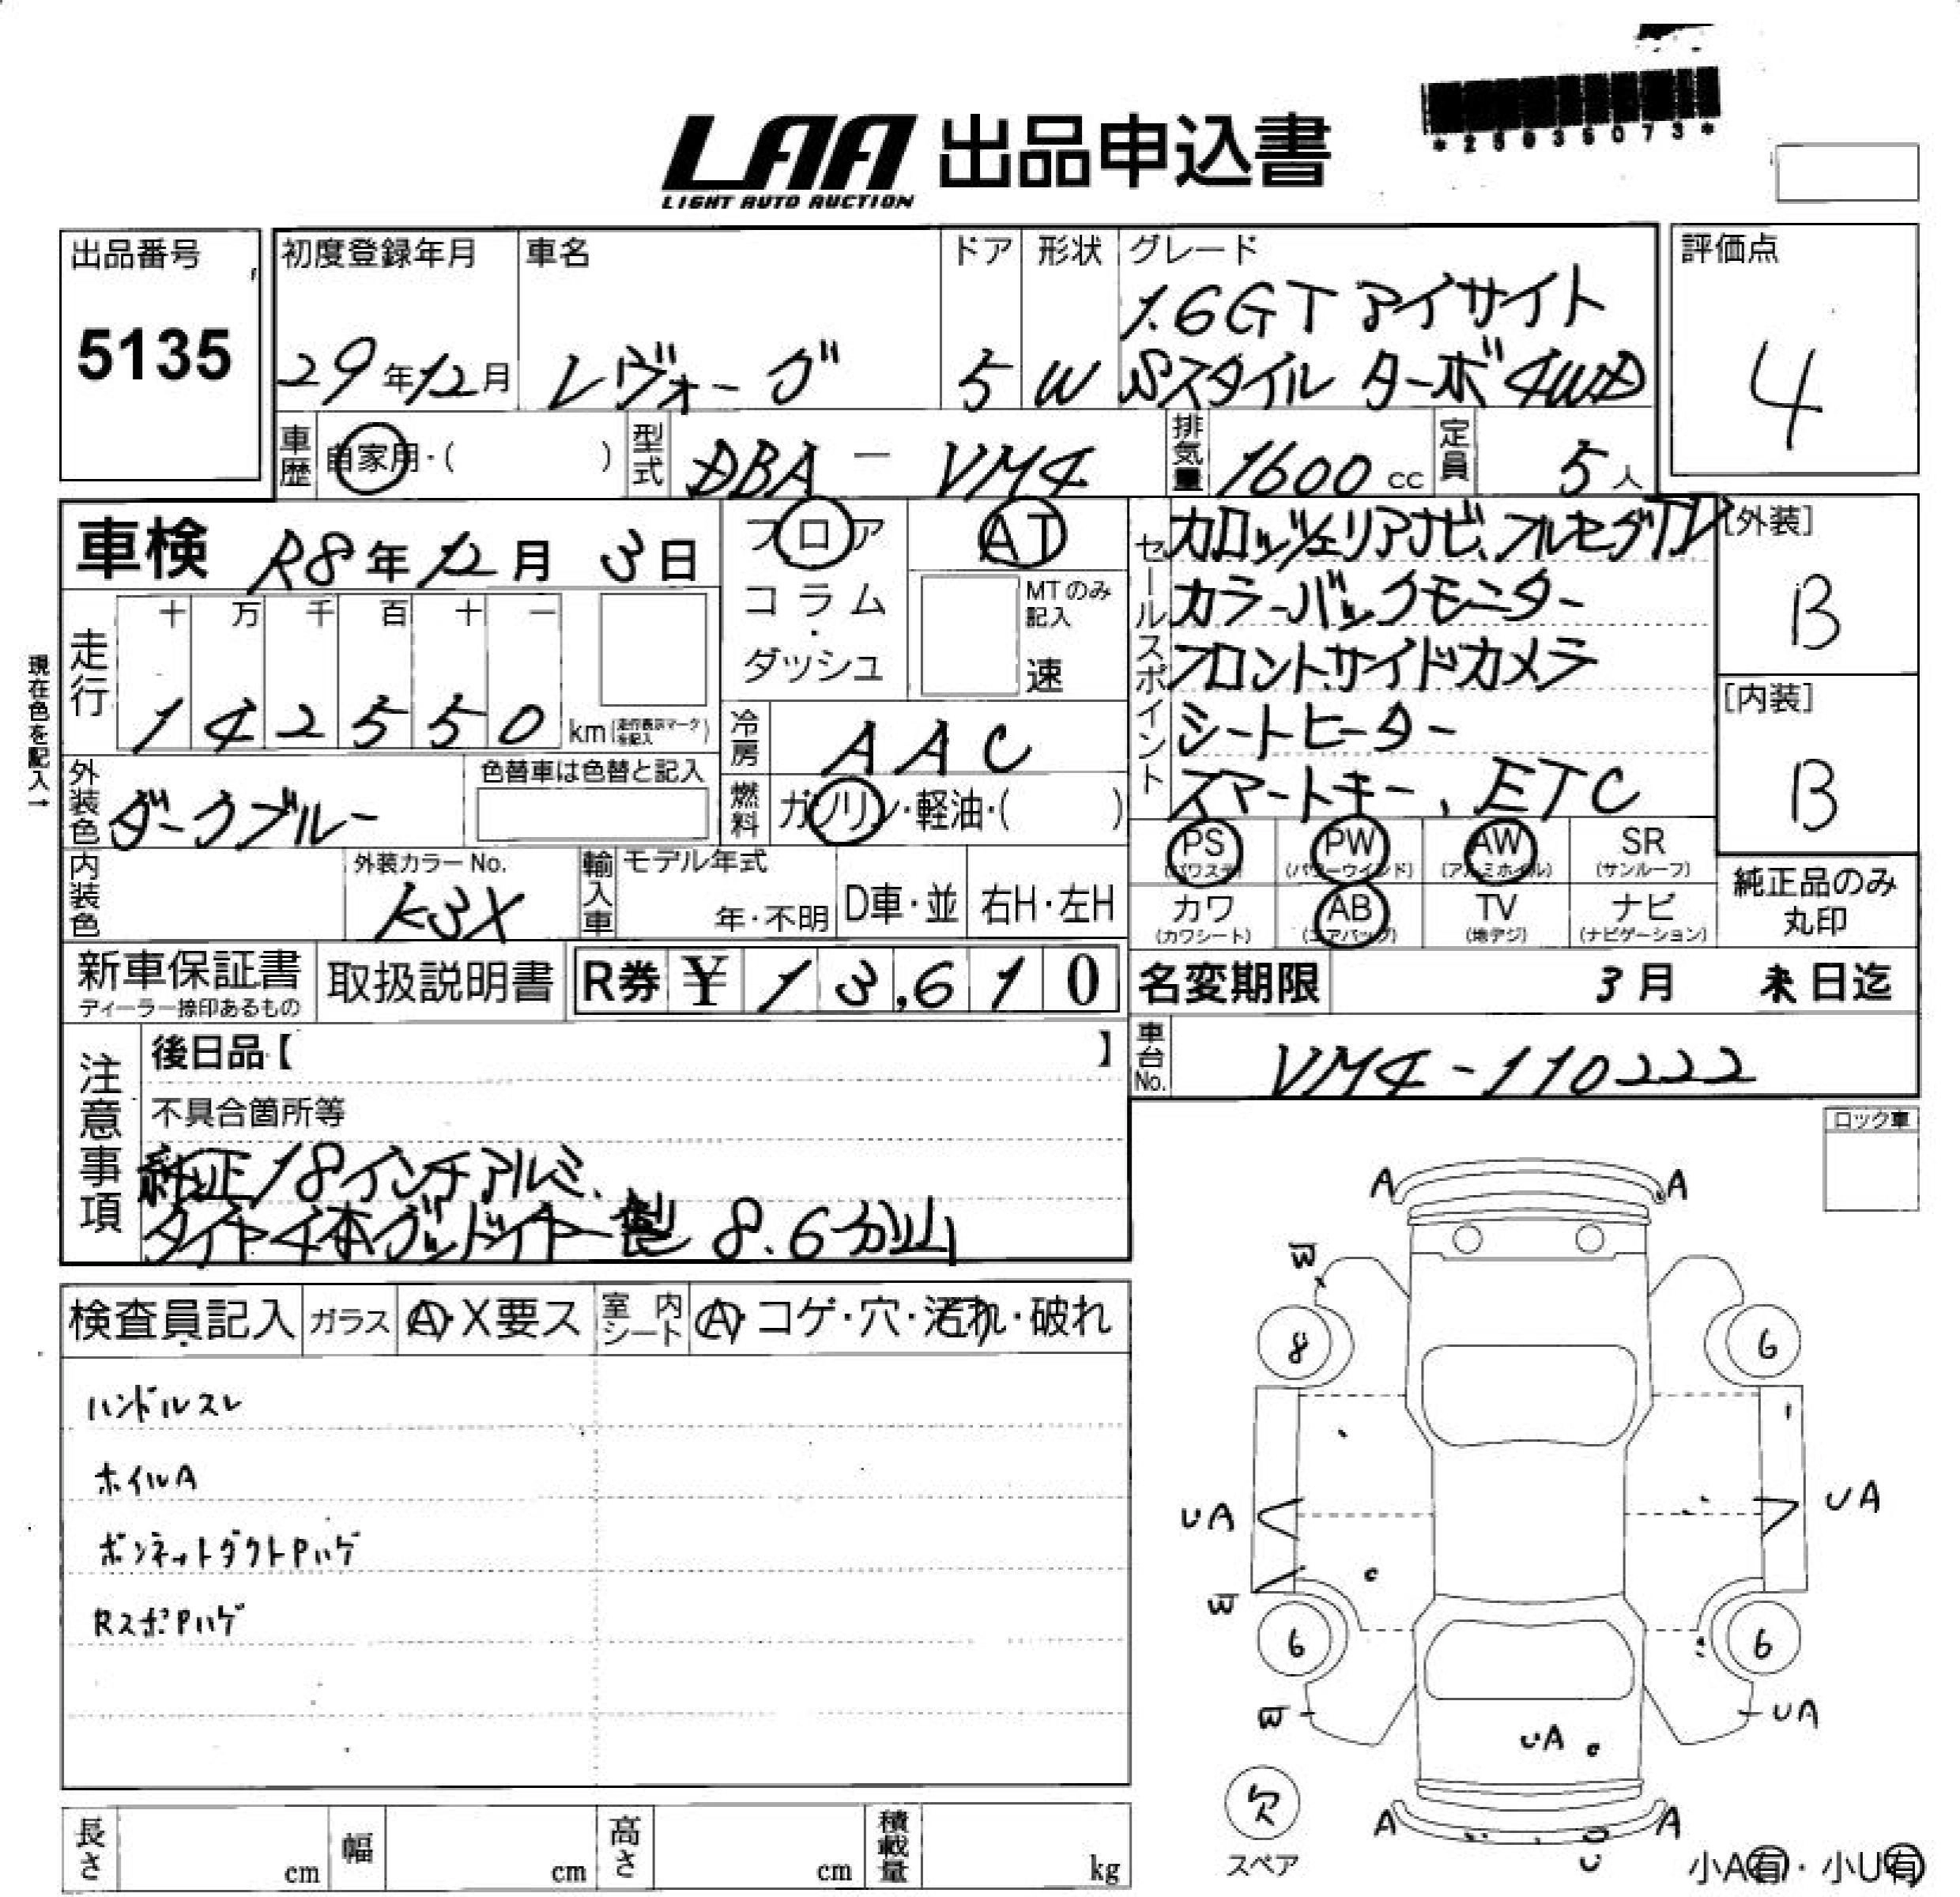 *25035073*
LAA 出品申込書
LIGHT AUTO AUCTION
出品番号
5135
初度登録年月
29年12月
車名
レヴォーグ
ドア
5
形状
W
グレード
1.6GT アイサイト
Sスタイル ターボ 4WD
評価点
4
車歴
自家用・( )
型式
DBA - VM4
排気量
1600 cc
定員
5人
車検 R8年12月3日
フロア
コラム
・
ダッシュ
AT
MTのみ
記入
速
現在色を記入→
走行
十 万 千 百 十 一
1 4 2 5 5 0 km (走行表示マークを記入)
冷房
AAC
外装色
ダークブルー
色替車は色替と記入
燃料
ガソリン・軽油・( )
内装色
外装カラーNo.
K3X
輸入車
モデル年式
年・不明
D車・並
右H・左H
セールスポイント
カロッツェリアナビ、フルセグTV
カラーバックモニター
フロントサイドカメラ
シートヒーター
スマートキー、ETC
[外装]
B
[内装]
B
PS
(パワステ)
PW
(パワーウインド)
AW
(アルミホイル)
SR
(サンルーフ)
カワ
(カワシート)
AB
(エアバッグ)
TV
(地デジ)
ナビ
(ナビゲーション)
純正品のみ
丸印
新車保証書
ディーラー捺印あるもの
取扱説明書
R券 ¥ 13,610
名変期限 3月 末日迄
車台No.
VM4-110222
注意事項
後日品【 】
不具合箇所等
純正18インチアルミ、
タイヤ4本グッドイヤー製 8.6分山
ロック車
検査員記入
ガラス
A・X要ス
室内シート
A・コゲ・穴・汚れ・破れ
ハンドルスレ
ホイルA
ボンネットダクトPハゲ
RスポPハゲ
A A
W
8 6
UA UA
W
6 6
W UA
UA
欠
スペア
A A
U
小A有・小U有
長さ cm
幅 cm
高さ cm
積載量 kg